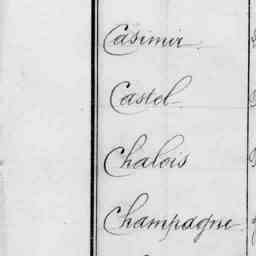 Casimir
Castel
Chalois
Champagne